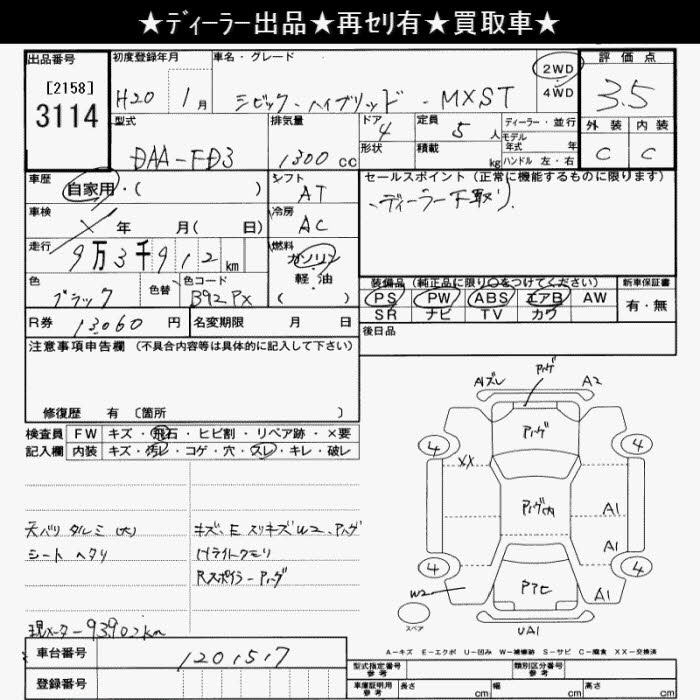 ★ディーラー出品★再セリ有★買取車★
出品番号 初度登録年月 車名・グレード 2WD 評価点
[2158] H20 1月 シビック ハイブリッド - MXST 4WD 3.5
3114
型式 排気量 ドア 定員 ディーラー・並行 外装 内装
4 5人 モデル
DAA-FD3 1300cc 形状 積載 kg 年式 年 C C
ハンドル 左・右
車歴 自家用・( ) シフト AT セールスポイント(正常に機能するものに限ります)
ディーラー下取り
車検 年 月( 日) 冷房 AC
走行 9万3千912km 燃料 ガソリン
軽・油
( )
色 ブラック 色替 色コード B92PX
装備品(純正品に限り○をつけてください) 新車保証書
PS PW ABS エアB AW 有・無
SR ナビ TV カワ
R券 13060円 名変期限 月 日 後日品
注意事項申告欄(不具合内容等は具体的に記入して下さい)
修復歴 有 〔箇所 〕
検査員 FW キズ・飛石・ヒビ割・リペア跡・×要
記入欄 内装 キズ・汚レ・コゲ・穴・スレ・キレ・破レ
天バリ タルミ(大) キズ、E スリキズ W2、アハゲ
シート ヘタリ Hライトクモリ
Rスポイラーアハゲ
現メーター 93902km
A1ズレ アハゲ A2
アハゲ
4 4
XX
アハゲ内 A1
A1
4 4
W2 アヒ A1
スペア UA1
A-キズ E-エクボ U-凹み W-補修跡 S-サビ C-腐食 XX-交換済
車台番号 1201517
登録番号
型式指定番号 参考 類別区分番号 参考
車庫証明用 参考 長さ cm 幅 cm 高さ cm